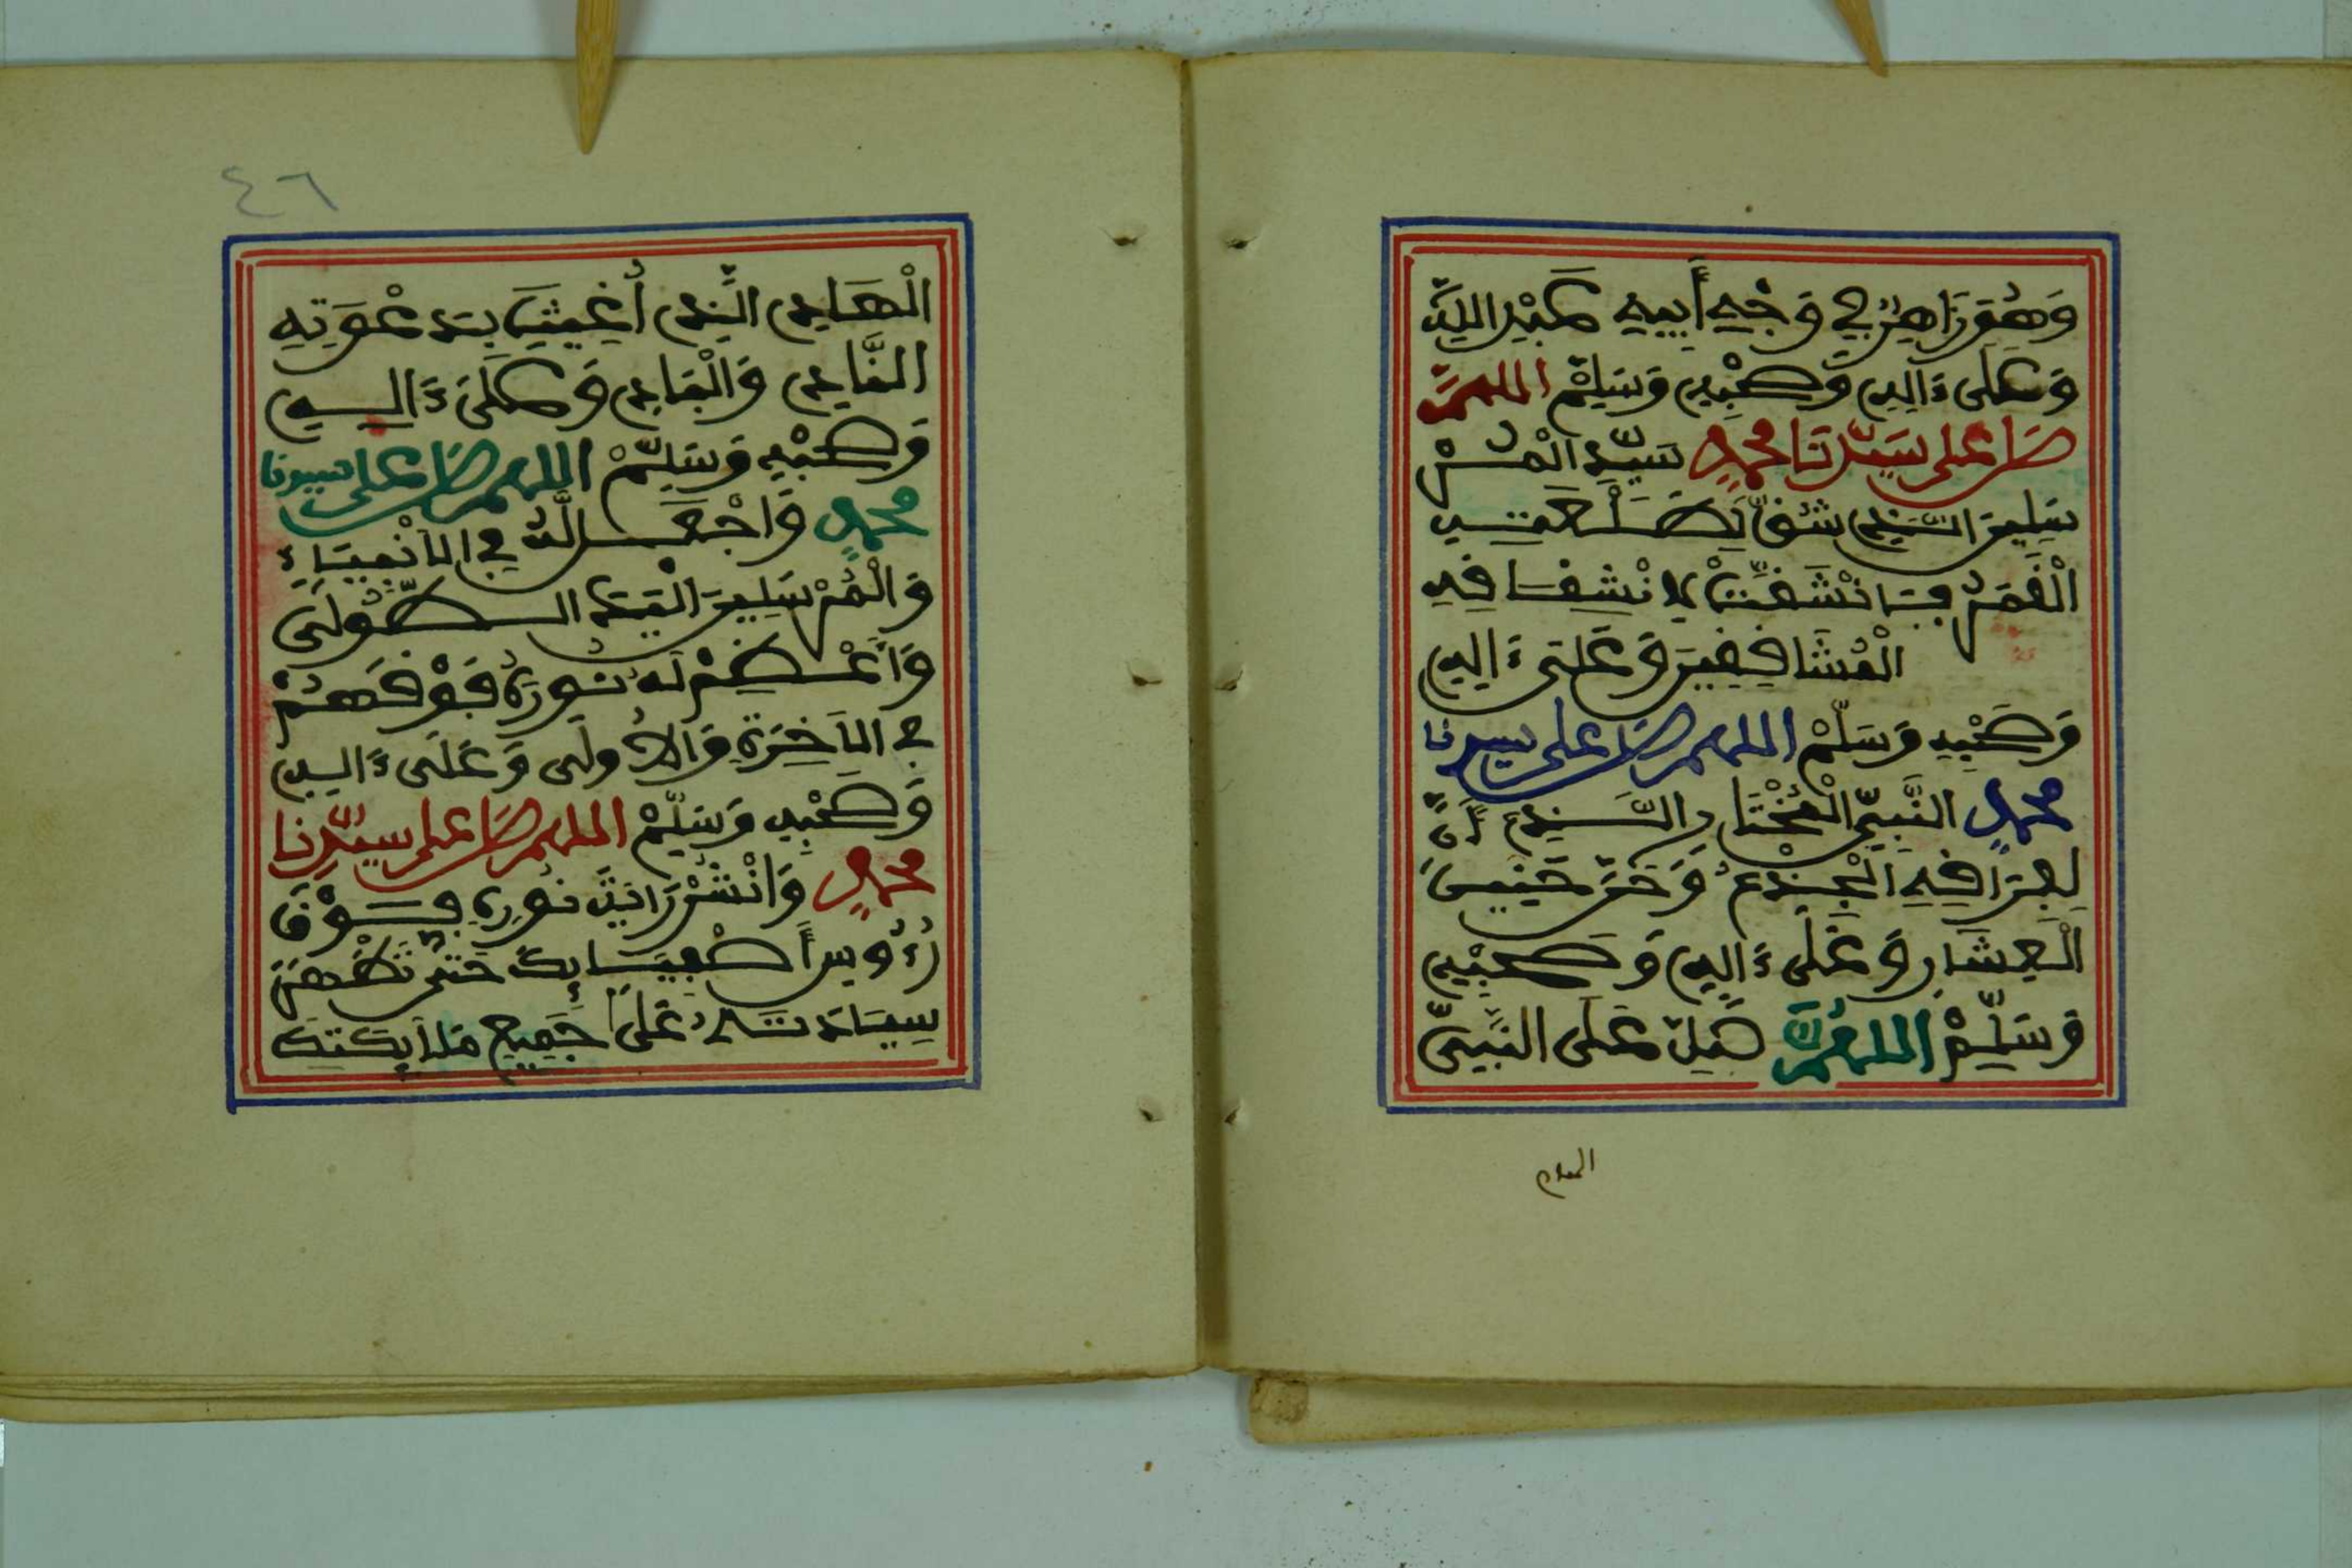 وَهُوَ زَاهِرٌ فِي وَجْهِ أَبِيهِ عَبْدِ اللَّهِ
وَعَلَى ءَالِهِ وَصَحْبِهِ وَسَلِّمْ اللهم
صل على سَيِّدِنَا مُحَمَّدٍ سَيِّدِ الْمُرْ
سَلِينَ الَّذِي شُقَّ لِطَلْعَتِهِ
الْقَمَرُ فَمَا انْشَقَّتْ لِانْشِقَاقِهِ
الْمُشَاقِقِينَ وَعَلَى ءَالِهِ
وَصَحْبِهِ وَسَلِّمْ اللهم صل على سيدنا
محمد النَّبِيِّ الْمُخْتَارِ الَّذِي أَنَّ
لِفِرَاقِهِ الْجِذْعُ وَحَنَّ حَنِينَ
الْعِشَارِ وَعَلَى ءَالِهِ وَصَحْبِهِ
وَسَلِّمْ اللهم صَلِّ عَلَى النَّبِيِّ
الهادى
٤٦
الْهَادِي الَّذِي أُغِيثَ بِدَعْوَتِهِ
النَّادِي وَالْبَادِي وَعَلَى ءَالِهِ
وَصَحْبِهِ وَسَلِّمْ اللهم صل على سيدنا
محمد وَاجْعَل لَّهُ فِي الأَنْبِيَاءِ
وَالْمُرْسَلِينَ الْيَدَ الطُّولَى
وَأَعْظِمْ لَهُ نُورَهُ فَوْقَهُمْ
فِي الآخِرَةِ وَالأُولَى وَعَلَى ءَالِهِ
وَصَحْبِهِ وَسَلِّمْ اللهم صل على سيدنا
محمد وَانْشُرْ رَايَةَ نُورِهِ فَوْقَ
رُءُوسِ أَصْفِيَائِكَ حَتَّى تَظْهَرَ
سِيَادَتُهُ عَلَى جَمِيعِ مَلَائِكَتِكَ